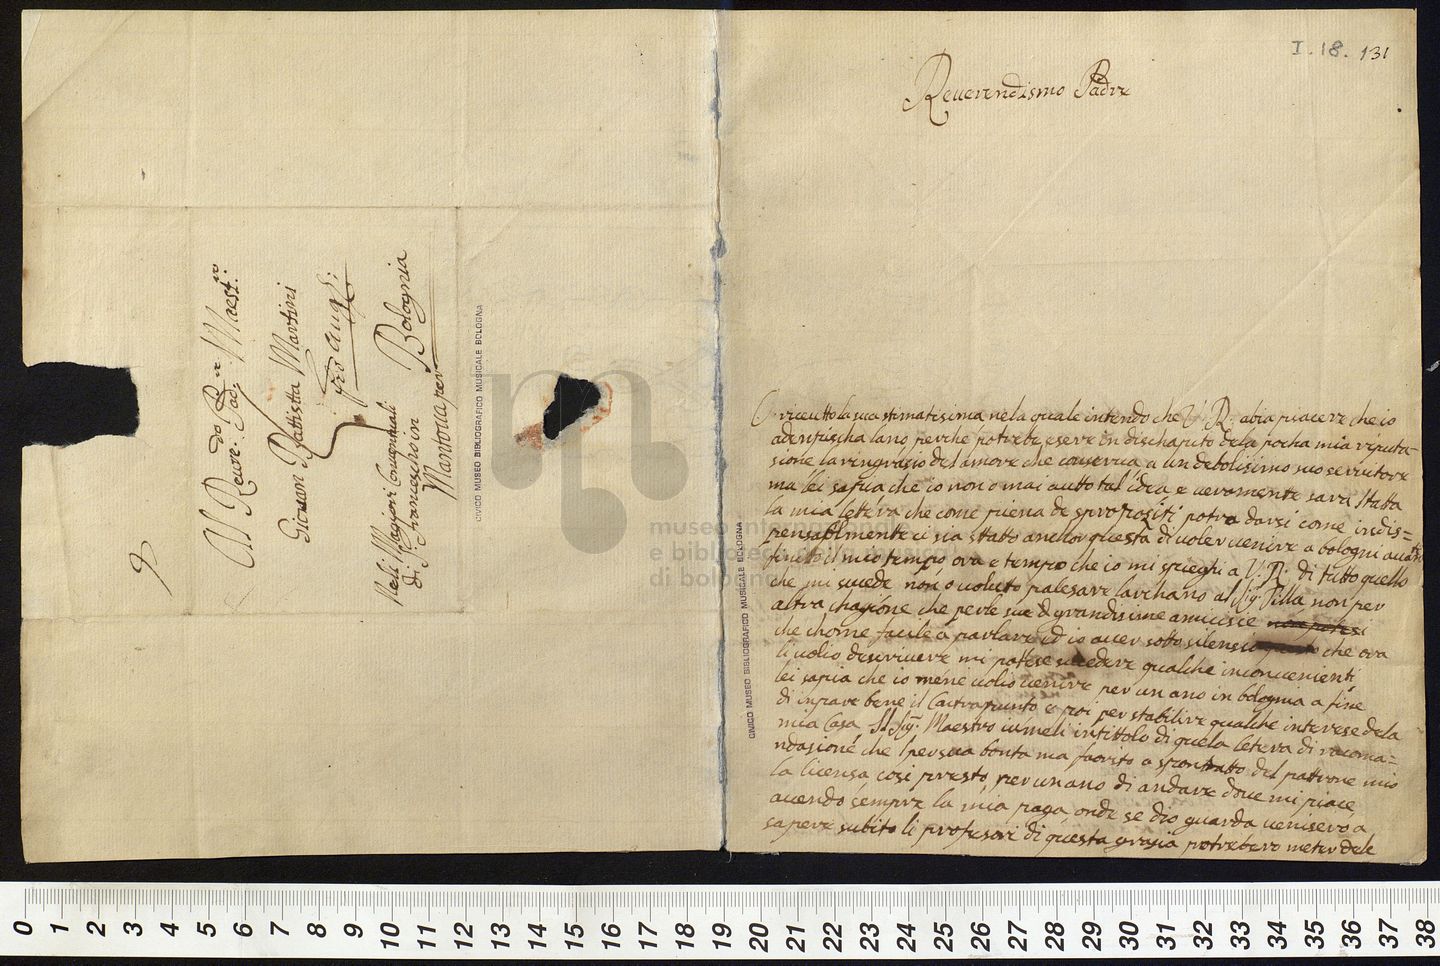 I.18. 131
Reverendisimo Padre
O riceutto la sua stimatisima nela quale intendo che V. R. abia piacere che io
adempischa l'ano perche potrebe esere in dischapito dela pocha mia riputa-
sione la ringrasio del amore che conserva a un debolisimo suo servitore
ma lei sapia che io non o mai autto tal idea e veramente sara statta
la mia lettera che come piena de spropoziti potra darsi come indis=
pensablmente vi sia statto anchor questa di voler venire a bologni avanti
finitto il mio tempo ora e tempo che io mi spieghi a V. R. di tutto quello
che mi sucede non o volutto palesare l'archano al Sig. Pilla non per
altra chagione che per le sue grandisime amicisie non potesi
che chome facile a parlare ed io aver sotto silensio questo che ora
li volio descrivere mi potese sucedere qualche inconvenienti
lei sapia che io me ne volio venire per un ano in bologna a fine
di inpare bene il Contrapunto e poi per stabilire qualche interese dela
mia Casa Il Sig. Maestro in titolo di quela letera di racoma=
ndasione che l per sua bonta ma favrito a spontatto del pattrone mio
la licensa cosi presto, per un ano di andare dove mi piace
avendo sempre la mia paga, onde se dio guarda veniserò a
sapere subito li profesori di questa grasia potrebero meter dele
Al Reve.do Pad. Maest.
Giovan Battista Martini
Nelli Maggiori Conventuali
di S. Francescho in
Bolognia
Mantova per
CIVICO MUSEO BIBLIOGRAFICO MUSICALE BOLOGNA
CIVICO MUSEO BIBLIOGRAFICO MUSICALE BOLOGNA
museo internazionale
e biblioteca della musica
di bologna
0 1 2 3 4 5 6 7 8 9 10 11 12 13 14 15 16 17 18 19 20 21 22 23 24 25 26 27 28 29 30 31 32 33 34 35 36 37 38